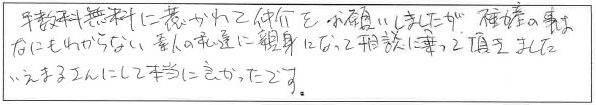 手数料無料に惹かれて仲介をお願いしましたが、不動産の事は
なにもわからない素人の私達に親身になって相談に乗って頂きました
いえまるさんにして本当に良かったです。